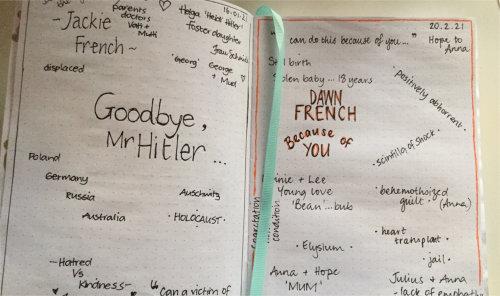 the
parents
doctors
Vati +
Mutti
Helga 'Heidi Hitler'
foster daughter
16.01.21
~ Jackie
French ~
'Georg' George
+ Mud
displaced
Goodbye,
Mr Hitler...
Poland
Germany
Russia
Auschwitz
Australia
· HOLOCAUST ·
-Hatred
Vs
Kindness-
"Can a victim of
20.2.21
can do this because of you..."
Hope to
Anna
Still birth
Stolen baby ... 18 years
DAWN
FRENCH
Because of
YOU
· positively abhorrent ·
· scintilla of shock ·
+ Lee
Young love
'Bean'...bub
· behemothized
guilt · (Anna)
condition
· Elysium ·
· heart
transplant ·
· jail ·
Anna + Hope
'MUM'
Julius + Anna
- lack of empathy